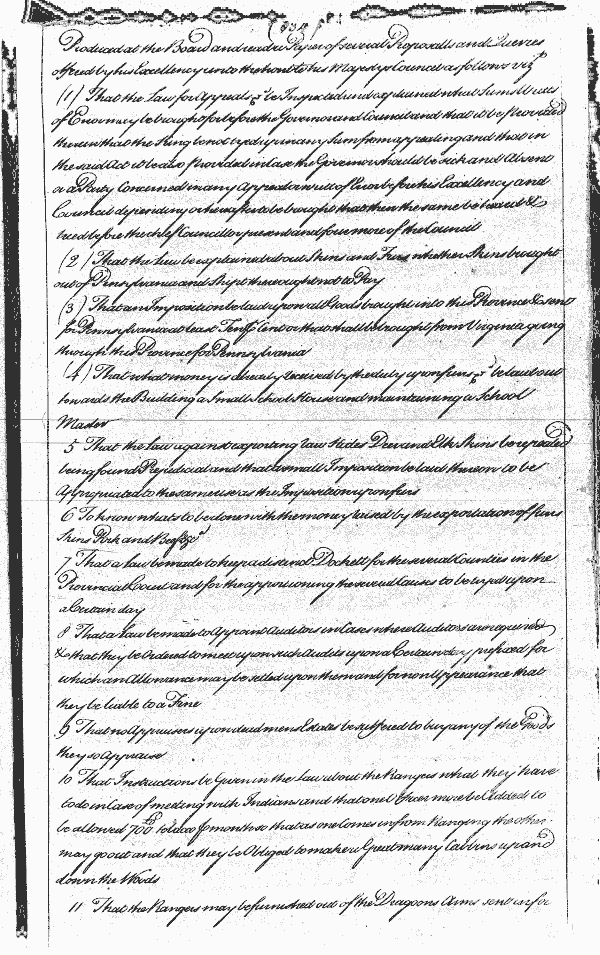 Produced at the Board and read a Paper of severall Proposalls and Queries
offered by his Excellency unto the honble his Majestys Councel as follows vizt
(1) That the Law for Appeals &c be Inspected and explained what Sums Writts
of Error may be brought for before the Governor and Council and that it be Provided
therein that the King be not tyed up in any Sum from appealing and that in
the said Act it be also provided in Case the Governor should be sick and Absent
or a Party Concerned in any Appeal or writt of Error before his Excellency and
Councel depending or hereafter to be brought that then the same be heard &
tried before the chief Councellor present and four more of the Council
(2) That the Law be explained about Skins and Furrs whether Skins brought
out of Pensylvania and Shipt thro ought not to Pay
(3) That an Imposition be laid upon all Goods brought into this Province & sent
for Pennsylvania at least Ten p Cent or that shall be brought from Virginia going
through this Province for Pennsylvania
(4) That what money is already received by the duty upon furrs &c be laid out
towards the Building a Small School House and maintaining a School
Master
5 That the Law against exporting raw Hides Deer and Elk Skins be repealed
being found Prejudicial and that a small Imposition be laid thereon to be
Appropriated to the same use as the Imposition upon furrs
6 To know what is to be done with the money raised by the exportation of furrs
Skins Pork and Beef &ca
7 That a Law be made to keep a distinct Dockett for the severall Counties in the
Provincial Court and for the apportioning the severall Causes to be tryed upon
a Certain day
8 That a Law be made to Appoint Auditors in Cases where Auditors are required
& that they be Ordered to meet upon such Audits upon a Certain day prefixed for
which an Allowance may be setled upon them and for non Appearance that
they be liable to a Fine
9 That no Appraisers upon dead mens Estates be suffered to buy any of the Goods
they so Appraise
10 That Instructions be Given in the Law about the Rangers what they have
to do in Case of meeting with Indians and that one Officer more be Added to
be allowed 700 lb tobacco p month so that as one Comes in from Ranging the other
may go out and that they be Obliged to make a Great many Cabbins up and
down the Woods
11 That the Rangers may be furnished out of the Dragoons Arms sent in for